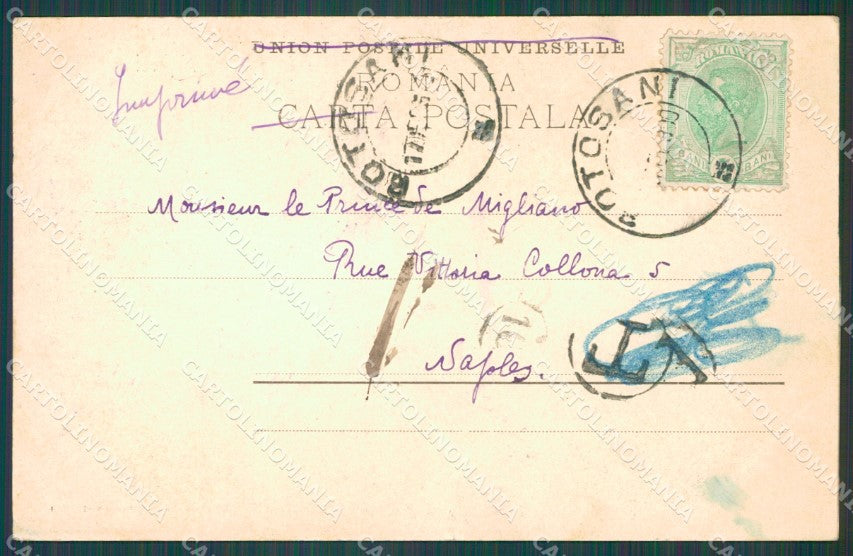 UNION POSTALE UNIVERSELLE
ROMANIA
CARTA POSTALA
Imprimé
BOTOSANI
BOTOSANI
ROMANIA
Monsieur le Prince de Migliano
Rue Vittoria Collona 5
Naples.
T
CARTOLINOMANIA